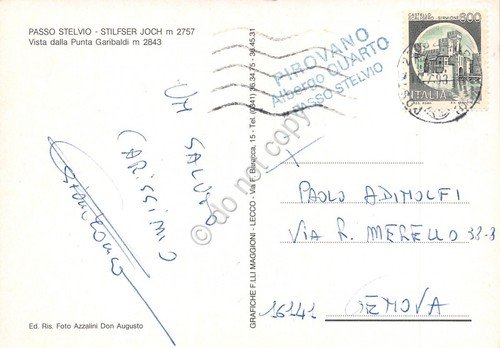 PASSO STELVIO - STILFSER JOCH m 2757
Vista dalla Punta Garibaldi m 2843
UN SALUTO
CARISSIMO
Ed. Ris. Foto Azzalini Don Augusto
GRAFICHE F.LLI MAGGIONI - LECCO - Via F. Baracca, 15 - Tel. (0341) 36.34.75 - 36.45.31
PIROVANO
Albergo QUARTO
PASSO STELVIO
600
ITALIA
PAOLO ADIMOLFI
VIA R. MERELLO 38-3
16141
GENOVA
do not copy